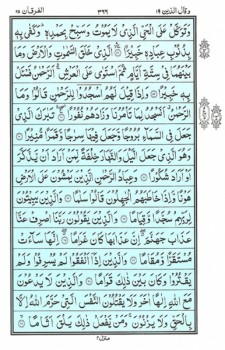 وقال الذين ١٩ ٣٢٦ الفرقان ٢٥
وَتَوَكَّلْ عَلَى الْحَيِّ الَّذِي لَا يَمُوتُ وَسَبِّحْ بِحَمْدِهِ ۚ وَكَفَىٰ بِهِ
بِذُنُوبِ عِبَادِهِ خَبِيرًا ۝ الَّذِي خَلَقَ السَّمٰوٰتِ وَالْأَرْضَ وَمَا
بَيْنَهُمَا فِي سِتَّةِ أَيَّامٍ ثُمَّ اسْتَوَىٰ عَلَى الْعَرْشِ ۛ الرَّحْمٰنُ فَسْـَٔلْ
بِهِ خَبِيرًا ۝ وَإِذَا قِيلَ لَهُمُ اسْجُدُوا لِلرَّحْمٰنِ قَالُوا وَمَا
الرَّحْمٰنُ أَنَسْجُدُ لِمَا تَأْمُرُنَا وَزَادَهُمْ نُفُورًا ۝ تَبٰرَكَ الَّذِي
جَعَلَ فِي السَّمَاءِ بُرُوجًا وَجَعَلَ فِيهَا سِرٰجًا وَقَمَرًا مُنِيرًا ۝
وَهُوَ الَّذِي جَعَلَ الَّيْلَ وَالنَّهَارَ خِلْفَةً لِمَنْ أَرَادَ أَنْ يَذَّكَّرَ
أَوْ أَرَادَ شُكُورًا ۝ وَعِبَادُ الرَّحْمٰنِ الَّذِينَ يَمْشُونَ عَلَى الْأَرْضِ
هَوْنًا وَإِذَا خَاطَبَهُمُ الْجٰهِلُونَ قَالُوا سَلٰمًا ۝ وَالَّذِينَ يَبِيتُونَ
لِرَبِّهِمْ سُجَّدًا وَقِيَامًا ۝ وَالَّذِينَ يَقُولُونَ رَبَّنَا اصْرِفْ عَنَّا
عَذَابَ جَهَنَّمَ ۖ إِنَّ عَذَابَهَا كَانَ غَرَامًا ۝ إِنَّهَا سَاءَتْ
مُسْتَقَرًّا وَمُقَامًا ۝ وَالَّذِينَ إِذَا أَنْفَقُوا لَمْ يُسْرِفُوا وَلَمْ
يَقْتُرُوا وَكَانَ بَيْنَ ذٰلِكَ قَوَامًا ۝ وَالَّذِينَ لَا يَدْعُونَ
مَعَ اللّٰهِ إِلٰهًا آخَرَ وَلَا يَقْتُلُونَ النَّفْسَ الَّتِي حَرَّمَ اللّٰهُ إِلَّا
بِالْحَقِّ وَلَا يَزْنُونَ ۚ وَمَنْ يَفْعَلْ ذٰلِكَ يَلْقَ أَثَامًا ۝
منزل ٤